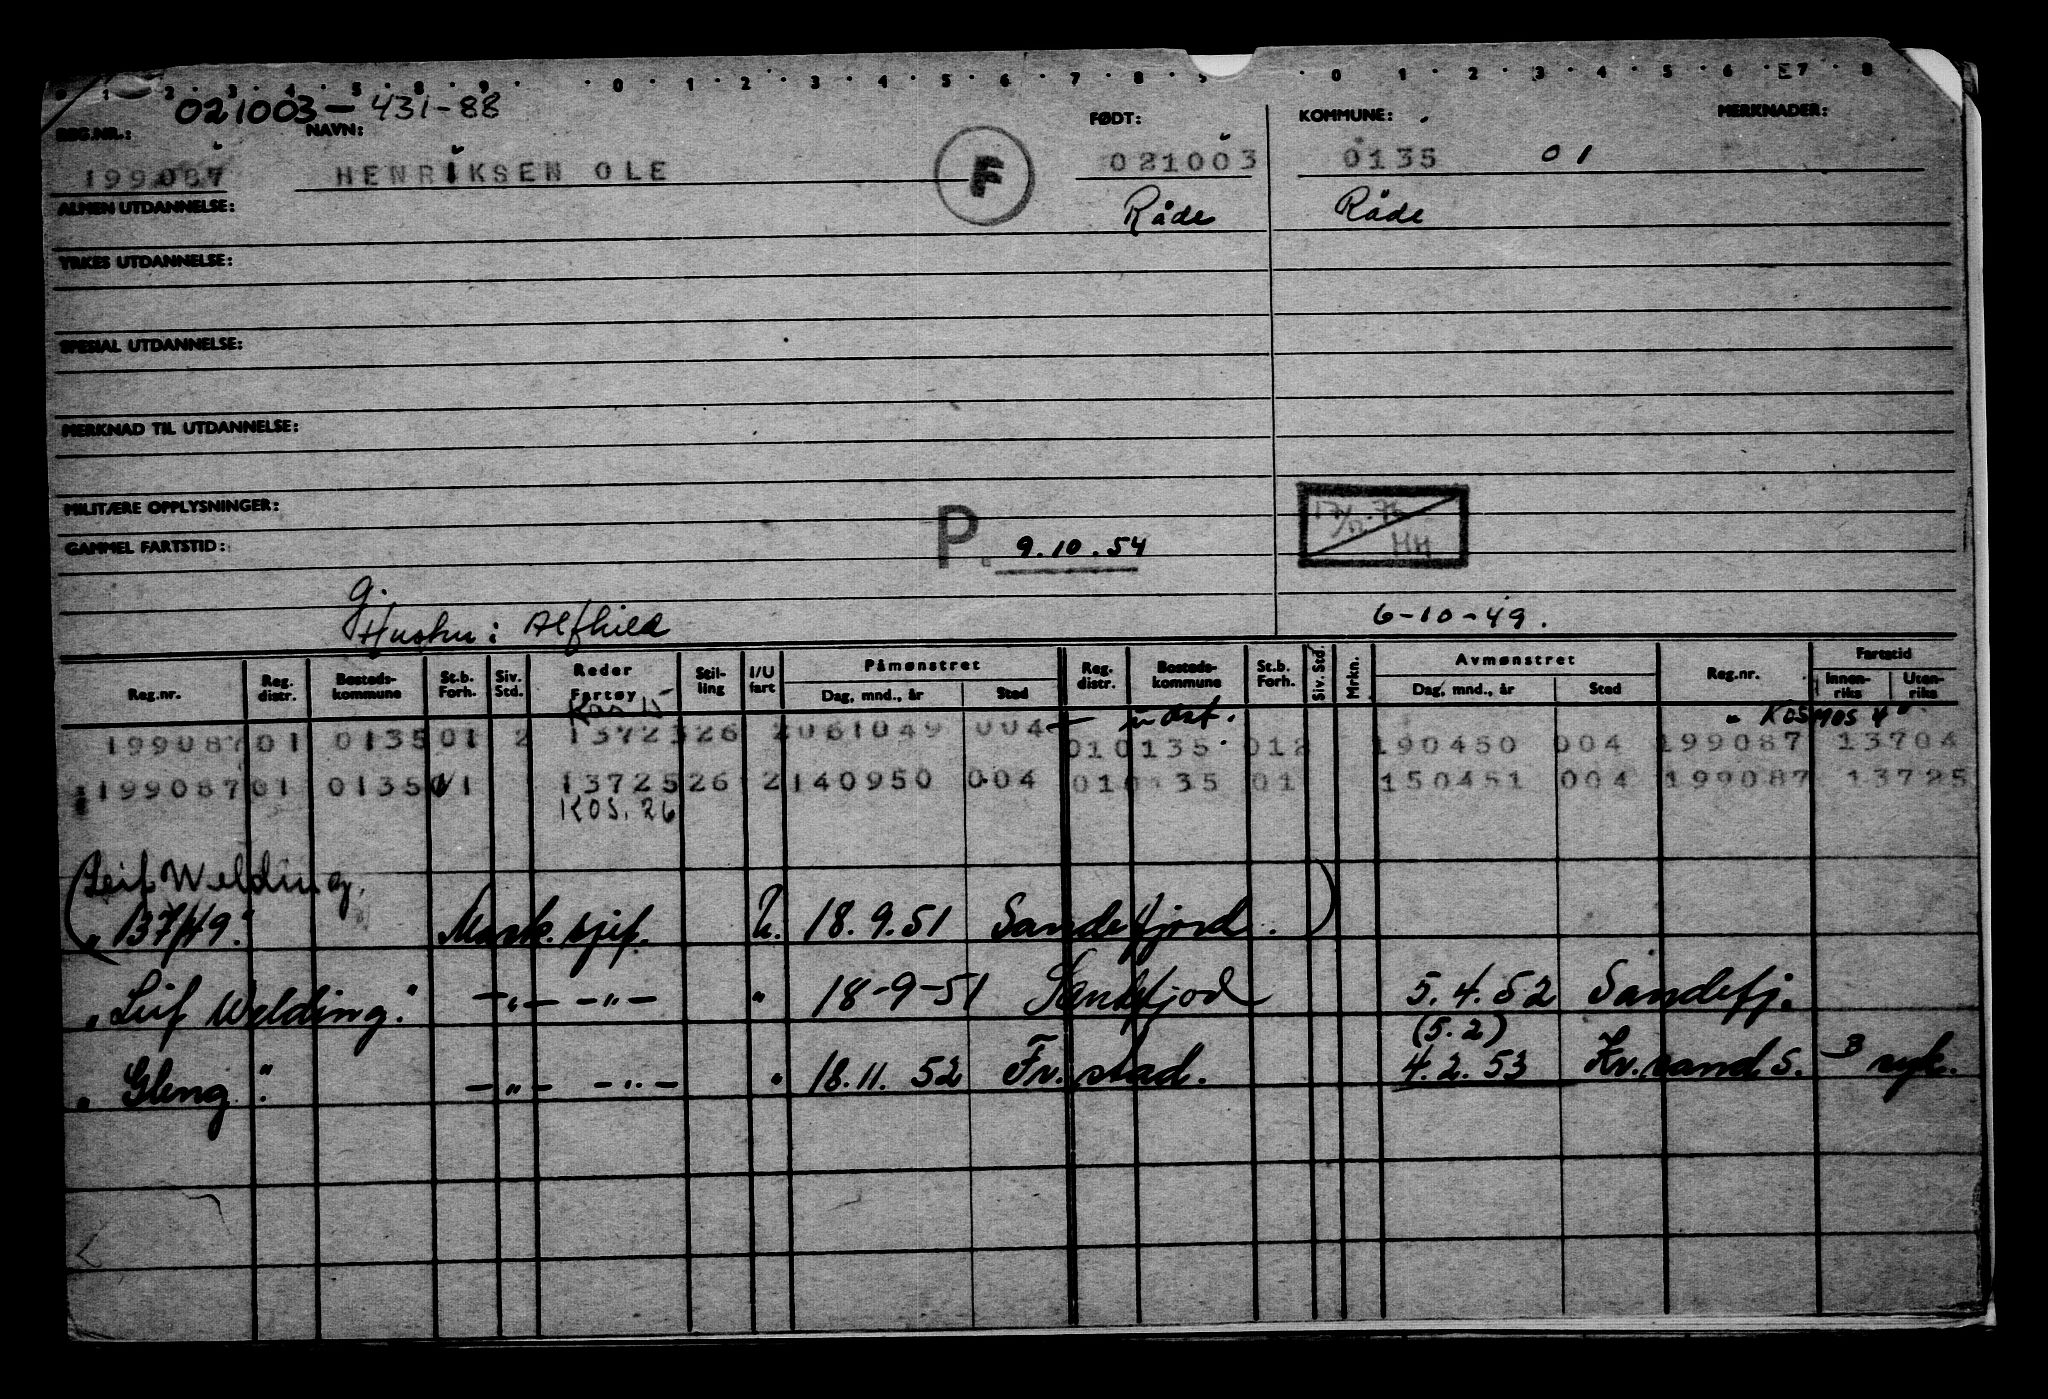 0 1 2 3 4 5 6 7 8 9 0 1 2 3 4 5 6 7 8 9 0 1 2 3 4 5 6 7 8
021003-431-88
REG.NR.: NAVN: FØDT: KOMMUNE: MERKNADER:
199087 HENRIKSEN OLE F 021003 0135 01
ALMEN UTDANNELSE: Råde Råde
YRKES UTDANNELSE:
SPESIAL UTDANNELSE:
MERKNAD TIL UTDANNELSE:
MILITÆRE OPPLYSNINGER:
GAMMEL FARTSTID: P. 9.10.54 HH
g.
Hustru: Alfhild 6-10-49.
Reg.nr. Reg. distr. Bosteds-kommune St.b. Forh. Siv. Std. Reder Fartøy Stil-ling I/U fart Påmønstret Dag, mnd., år Sted Reg. distr. Bosteds-kommune St.b. Forh. Siv. Std. Mrkn. Avmønstret Dag, mnd., år Sted Reg.nr. Fartstid Innen-riks Uten-riks
"KOSMOS 4"
199087 01 0135 01 2 13725 26 2 061049 004 01 0135 01 2 190450 004 199087 13704
199087 01 0135 01 13725 26 2 140950 004 01 0135 01 150451 004 199087 13725
KOS. 26
(Leif Welding.
"137/49." Mask.sjef. U. 18.9.51 Sandefjord.)
"Leif Welding." -"- -"- " 18-9-51 Sandefjord 5.4.52 Sandefj.
(5.2)
"Gleng." -"- -"- " 18.11.52 Fr.stad. 4.2.53 Kr.sand S. syk.